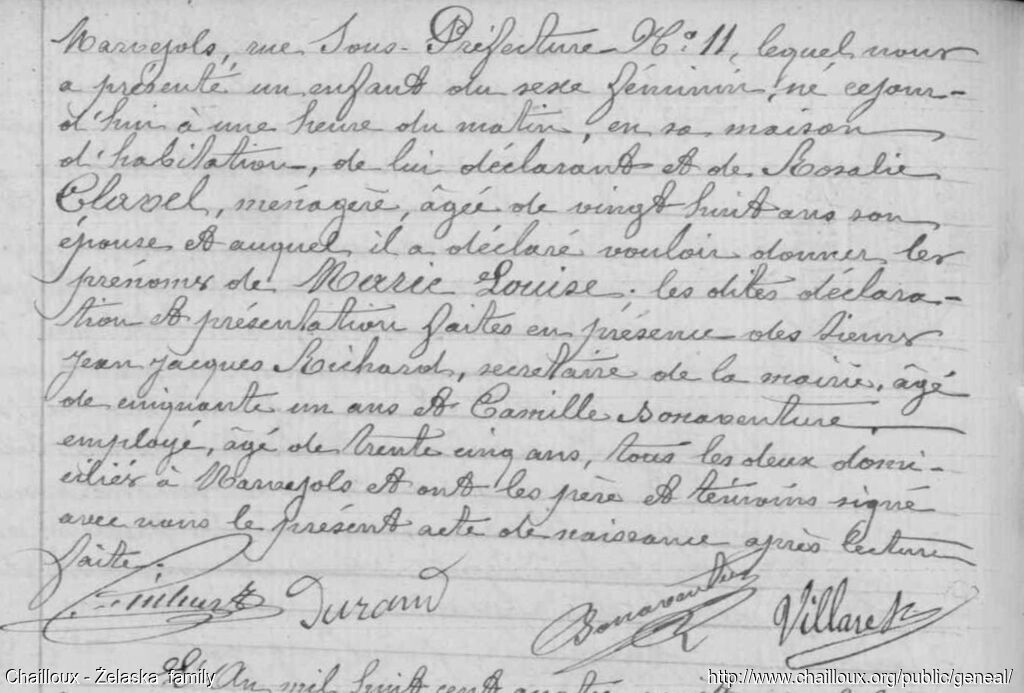 Marvejols, rue Sous-Préfecture N° 11, lequel nous
a présenté un enfant du sexe féminin, né cejour-
d'hui à une heure du matin, en sa maison
d'habitation, de lui déclarant et de Rosalie
Clavel, ménagère, âgée de vingt huit ans son
épouse et auquel il a déclaré vouloir donner les
prénoms de Marie Louise. les dites déclara-
tion et présentation faites en présence des sieurs
Jean Jacques Richard, secrétaire de la mairie, âgé
de cinquante un ans et Camille Bonaventure,
employé, âgé de trente cinq ans, tous les deux domi-
ciliés à Marvejols et ont les père et témoins signé
avec nous le présent acte de naissance après lecture
faite.
Durand Bonaventure Villaret
L'An mil huit cent
Chailloux - Żelaska family
http://www.chailloux.org/public/geneal/